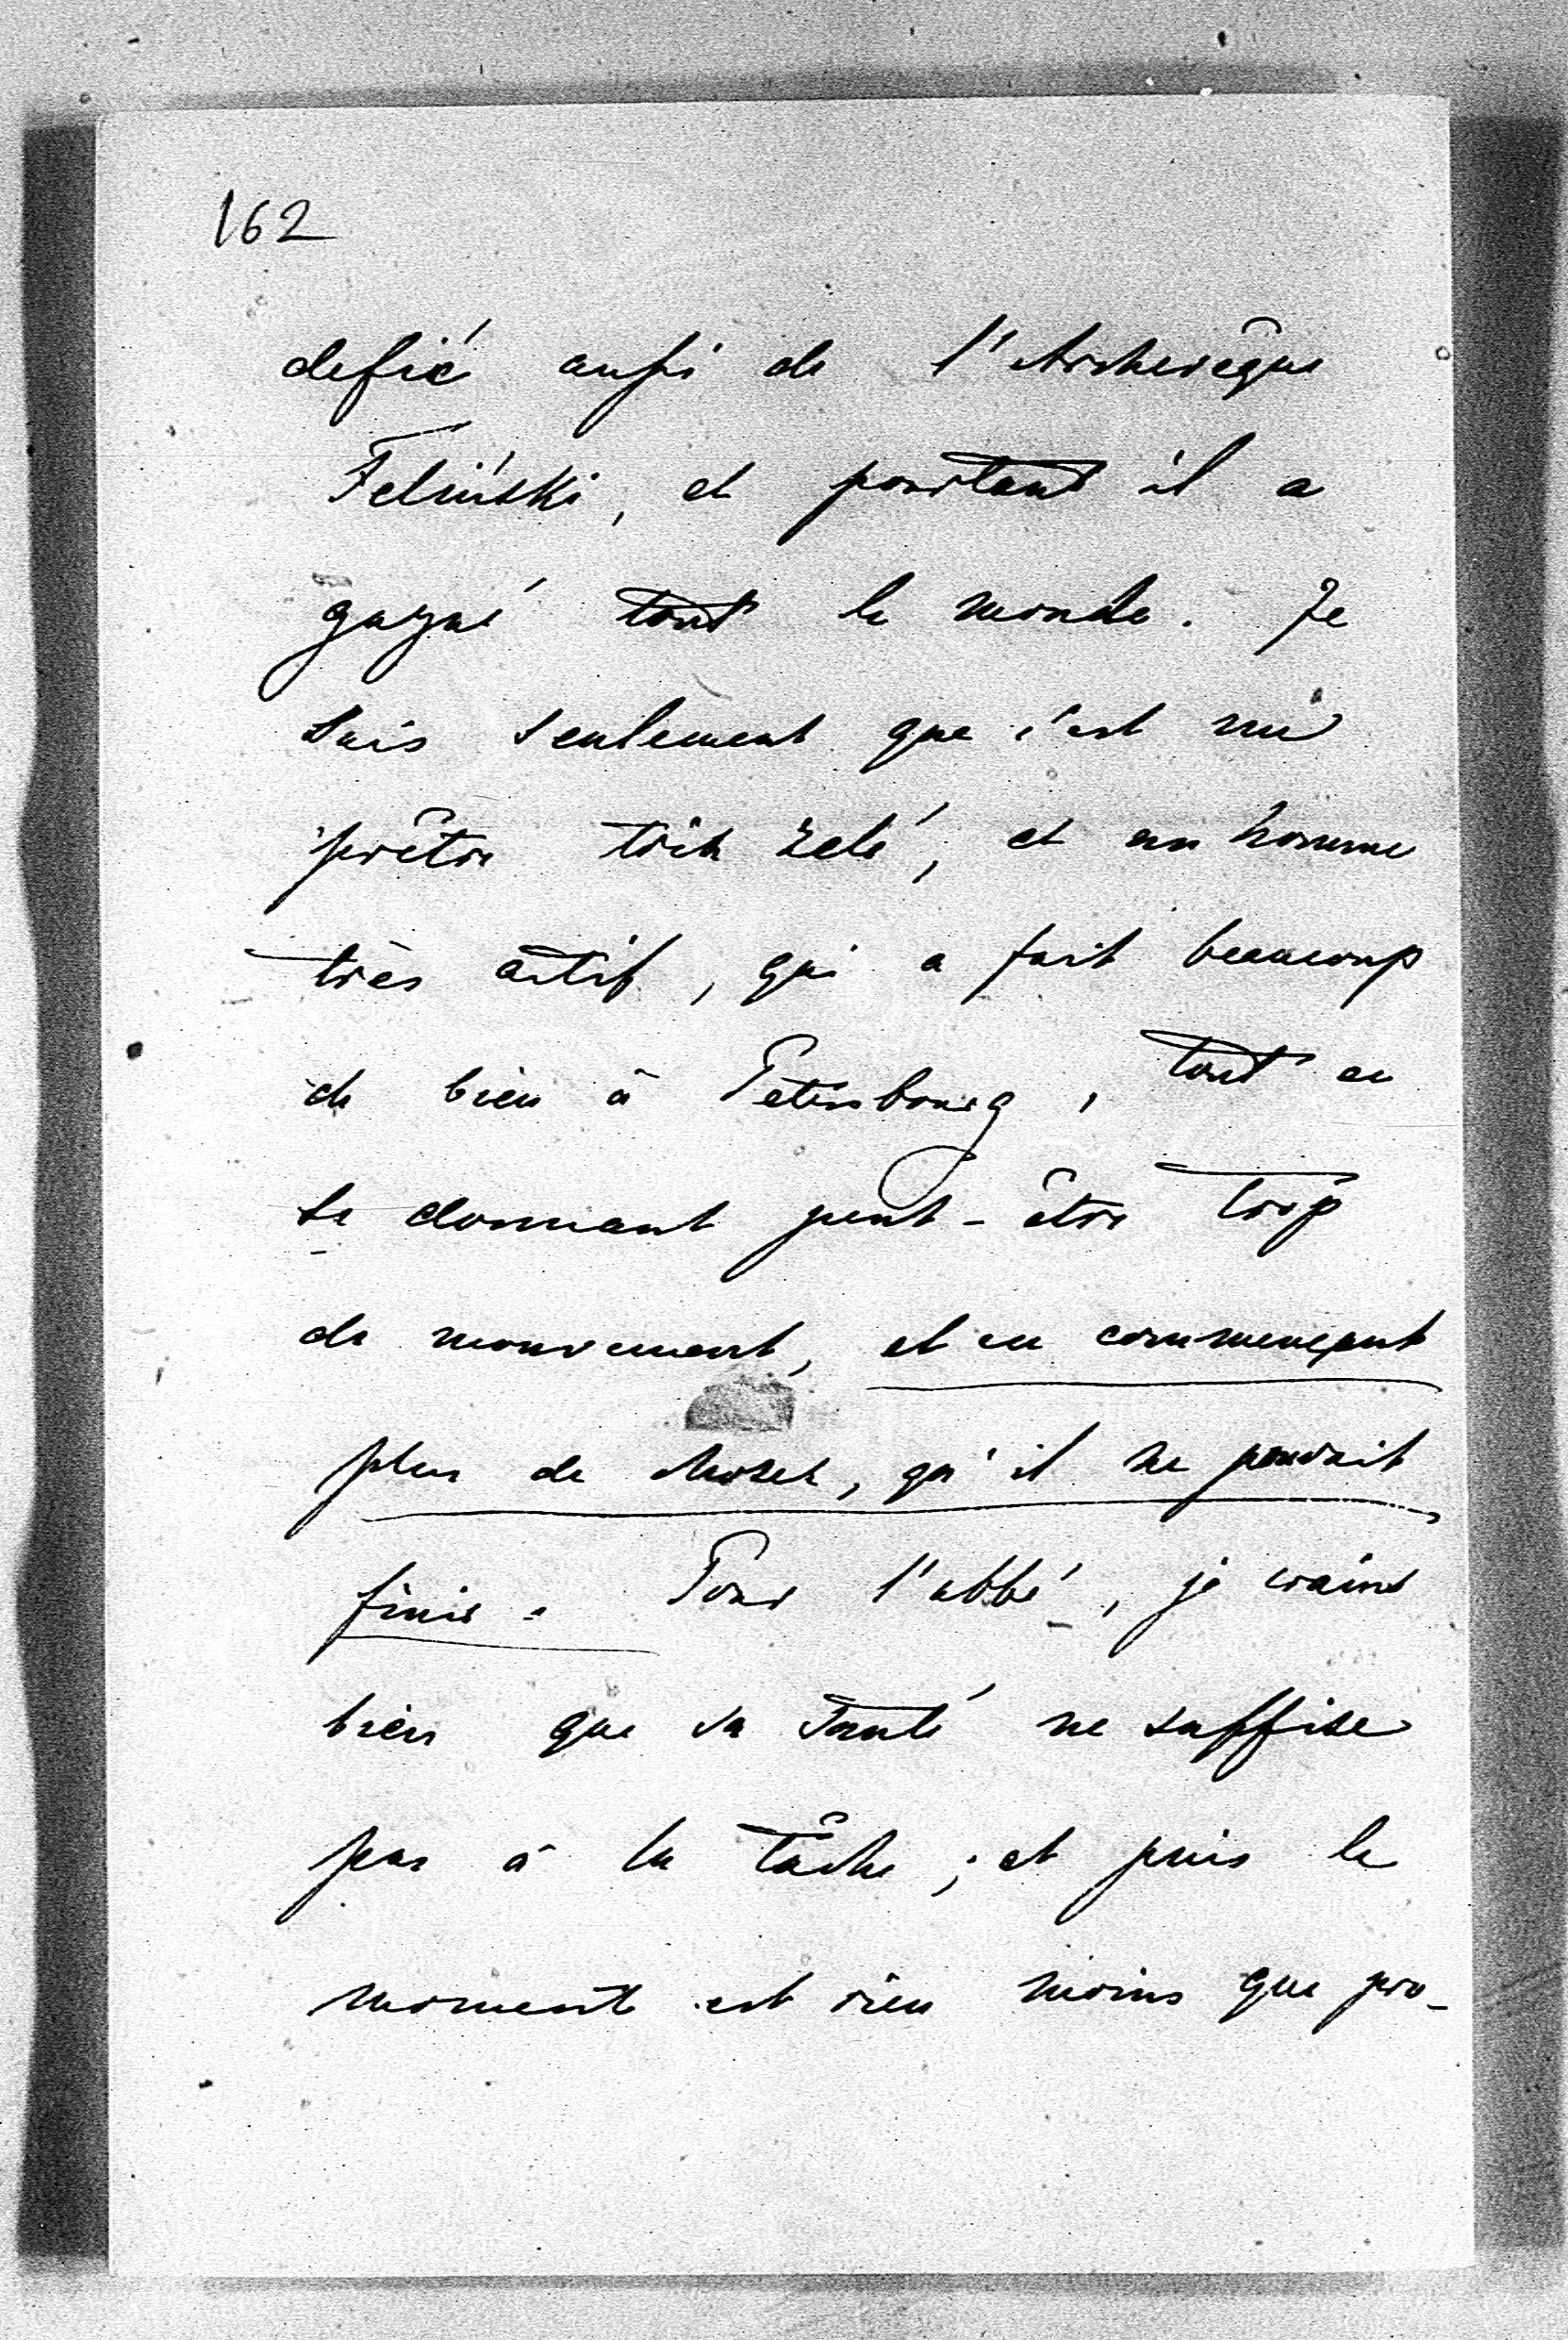 162
defié aussi de l'Archevêque
Feliński, et pourtant il a
gagné tout le monde. Je
sais seulement que c'est un
prêtre très zelé, et un homme
très actif, qui a fait beaucoup
de bien à Petersbourg, tout en
se donnant peut-être trop
de mouvement, et en commençant
plus de choses, qu'il ne pouvait
finir. Pour l'abbé, je crains
bien que sa santé ne suffise
pas à la tâche; et puis le
moment est rien moins que pro-